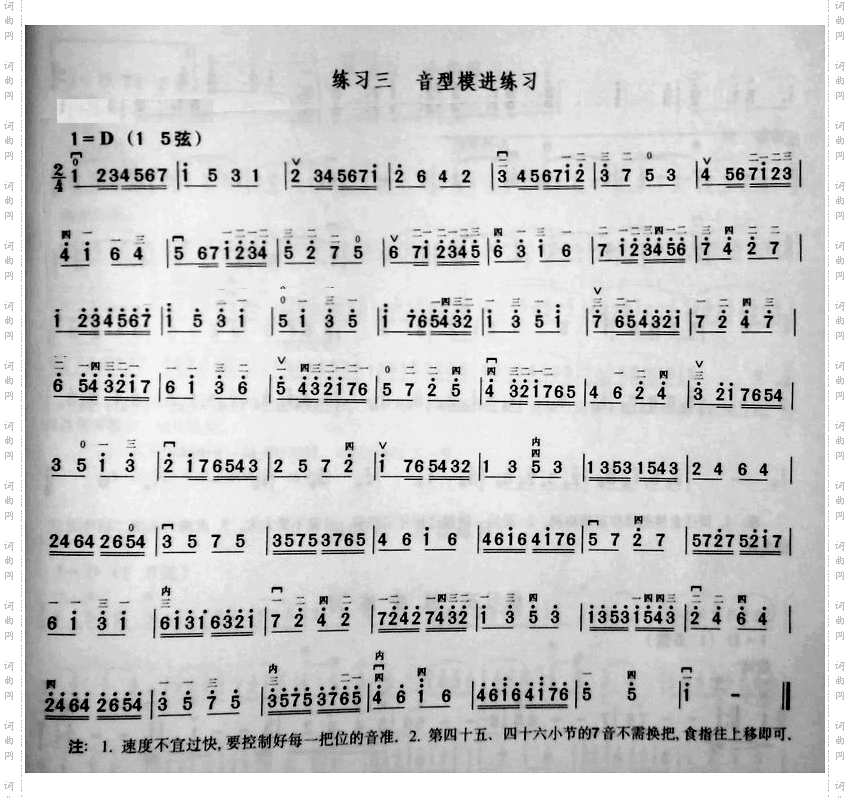 练习三 音型模进练习
1=D (1 5弦)
2/4 1 234567 | 1 5 3 1 | 2 345671 | 2 6 4 2 | 3 456712 | 3 7 5 3 | 4 567123 |
4 1 6 4 | 5 671234 | 5 2 7 5 | 6 712345 | 6 3 1 6 | 7 123456 | 7 4 2 7 |
1 234567 | 1 5 3 1 | 5 1 3 5 | 1 765432 | 1 3 5 1 | 7 654321 | 7 2 4 7 |
6 543217 | 6 1 3 6 | 5 432176 | 5 7 2 5 | 4 321765 | 4 6 2 4 | 3 217654 |
3 5 1 3 | 2 176543 | 2 5 7 2 | 1 765432 | 1 3 5 3 | 13531543 | 2 4 6 4 |
24642654 | 3 5 7 5 | 35753765 | 4 6 1 6 | 46164176 | 5 7 2 7 | 57275217 |
6 1 3 1 | 61316321 | 7 2 4 2 | 72427432 | 1 3 5 3 | 13531543 | 2 4 6 4 |
24642654 | 3 5 7 5 | 35753765 | 4 6 1 6 | 46164176 | 5 5 | 1 - ‖
注: 1. 速度不宜过快, 要控制好每一把位的音准. 2. 第四十五、四十六小节的7音不需换把, 食指往上移即可.